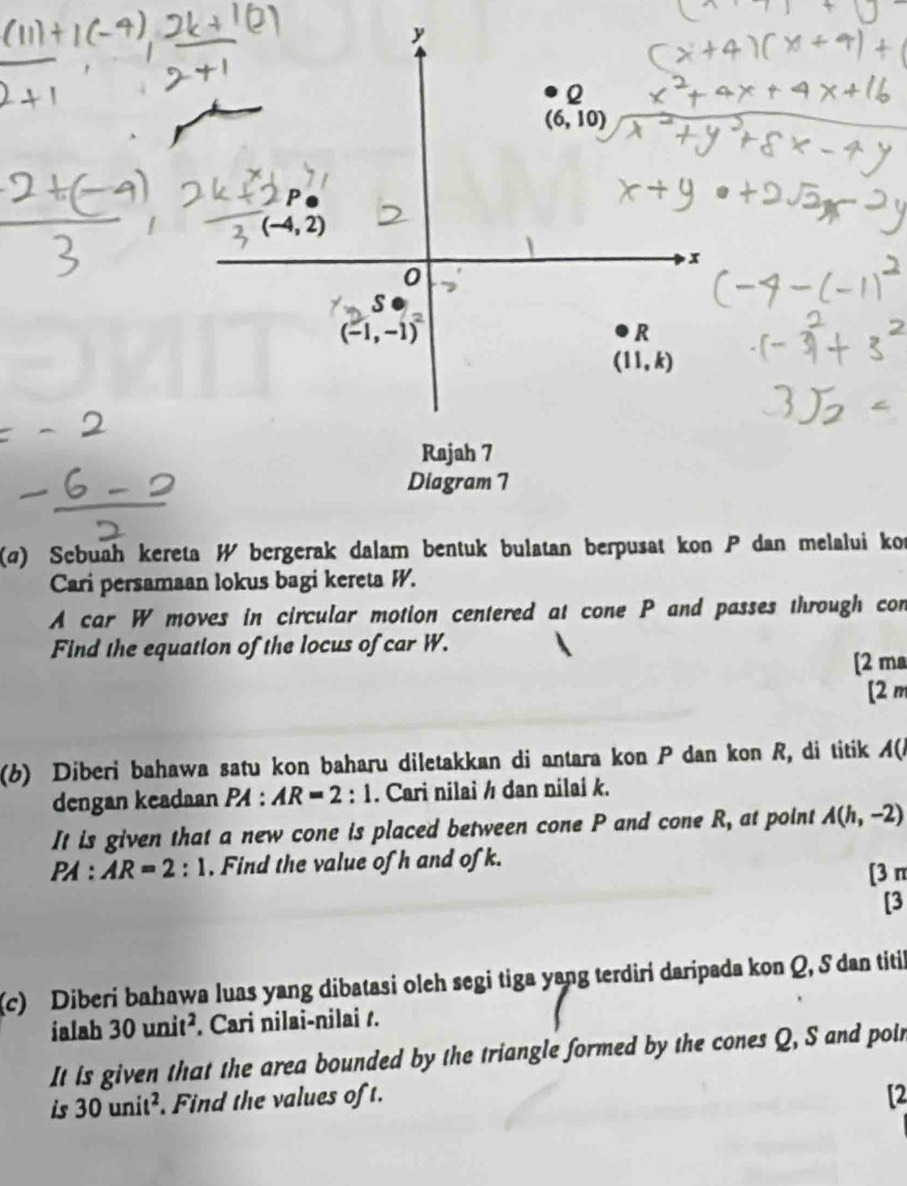 (11)+1(-4) , 2k+1(2)
2+1 , 2+1
y
(x+4)(x+4)+(
Q x²+4x+4x+16
(6, 10) x²+y²+8x-4y
2+(-4) , 2k+2 P
3 3 (-4, 2) 2
x+y+2√2x-2y
1
x
O
S
(-1, -1)
(-4-(-1)²
R
(11, k)
(-3)²+3²
3√2 =
= -2
-6-2
2
Rajah 7
Diagram 7
(a) Sebuah kereta W bergerak dalam bentuk bulatan berpusat kon P dan melalui ko
Cari persamaan lokus bagi kereta W.
A car W moves in circular motion centered at cone P and passes through con
Find the equation of the locus of car W.
[2 ma
[2 m
(b) Diberi bahawa satu kon baharu diletakkan di antara kon P dan kon R, di titik A(
dengan keadaan PA : AR = 2 : 1. Cari nilai h dan nilai k.
It is given that a new cone is placed between cone P and cone R, at point A(h, −2)
PA : AR = 2 : 1. Find the value of h and of k.
[3 m
[3
(c) Diberi bahawa luas yang dibatasi oleh segi tiga yang terdiri daripada kon Q, S dan titi
ialah 30 unit². Cari nilai-nilai t.
It is given that the area bounded by the triangle formed by the cones Q, S and poin
is 30 unit². Find the values of t.
[2